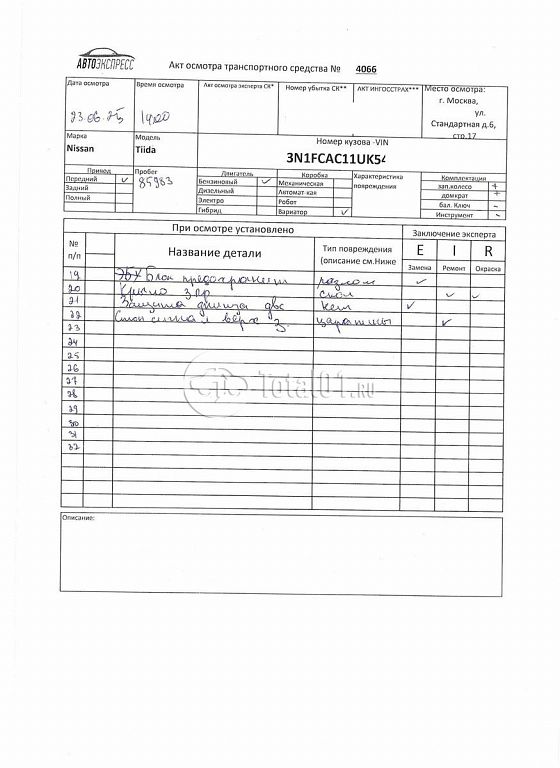 АВТОЭКСПРЕСС
Акт осмотра транспортного средства № 4066
Дата осмотра
Время осмотра
Акт осмотра эксперта СК*
Номер убытка СК**
АКТ ИНГОССТРАХ***
Место осмотра:
г. Москва,
ул.
Стандартная д.6,
стр.17
23.06.25
1400
Марка
Модель
Номер кузова -VIN
Nissan
Tiida
3N1FCAC11UK54
Привод
Пробег
Двигатель
Коробка
Характеристика повреждения
Комплектация
Передний ✓
85983
Бензиновый ✓
Механическая
зап.колесо +
Задний
Дизельный
Автомат-кая
домкрат +
Полный
Электро
Робот
бал. Ключ -
Гибрид
Вариатор ✓
Инструмент -
При осмотре установлено
Заключение эксперта
№ п/п
Название детали
Тип повреждения (описание см.Ниже
E I R
Замена Ремонт Окраска
19 Эбу блок разлом ✓
20 Крыло скол ✓ ✓
21 Защита днища двс ✓
22 Стоп сигнал верх З. царапины ✓
23
24
25
26
27
28
29
30
31
32
Total01.RU
Описание: